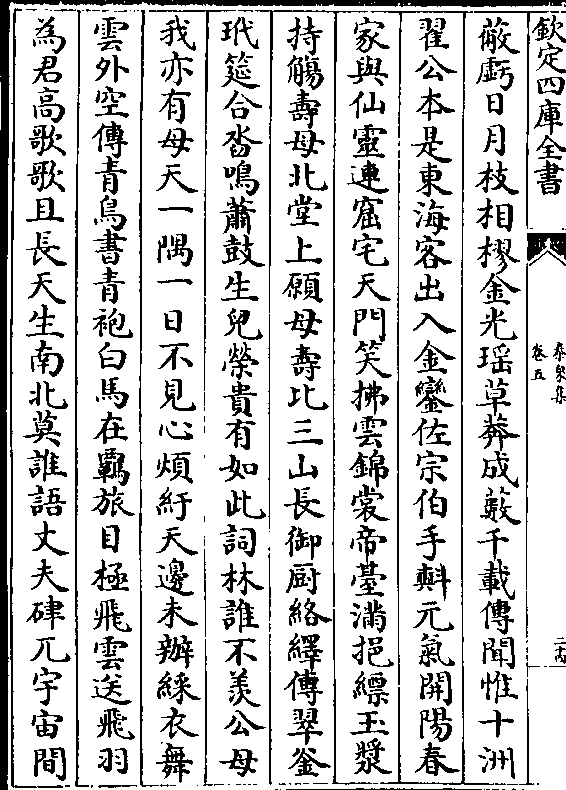 欽定四庫全書
泰泉集
卷五
蔽虧日月枝相樛金光瑶草莽成藪千載傳聞惟十洲
翟公本是東海客出入金鑾佐宗伯手斡元氣開陽春
家與仙靈連窟宅天門笑拂雲錦裳帝臺滿挹縹玉漿
持觴壽母北堂上願母壽比三山長御厨絡繹傳翠釜
玳筵合沓鳴蕭鼓生兒榮貴有如此詞林誰不羨公母
我亦有母天一隅一日不見心煩紆天邊未辦綵衣舞
雲外空傳青鳥書青袍白馬在羈旅目極飛雲送飛羽
為君高歌歌且長天生南北莫誰語丈夫硉兀宇宙間